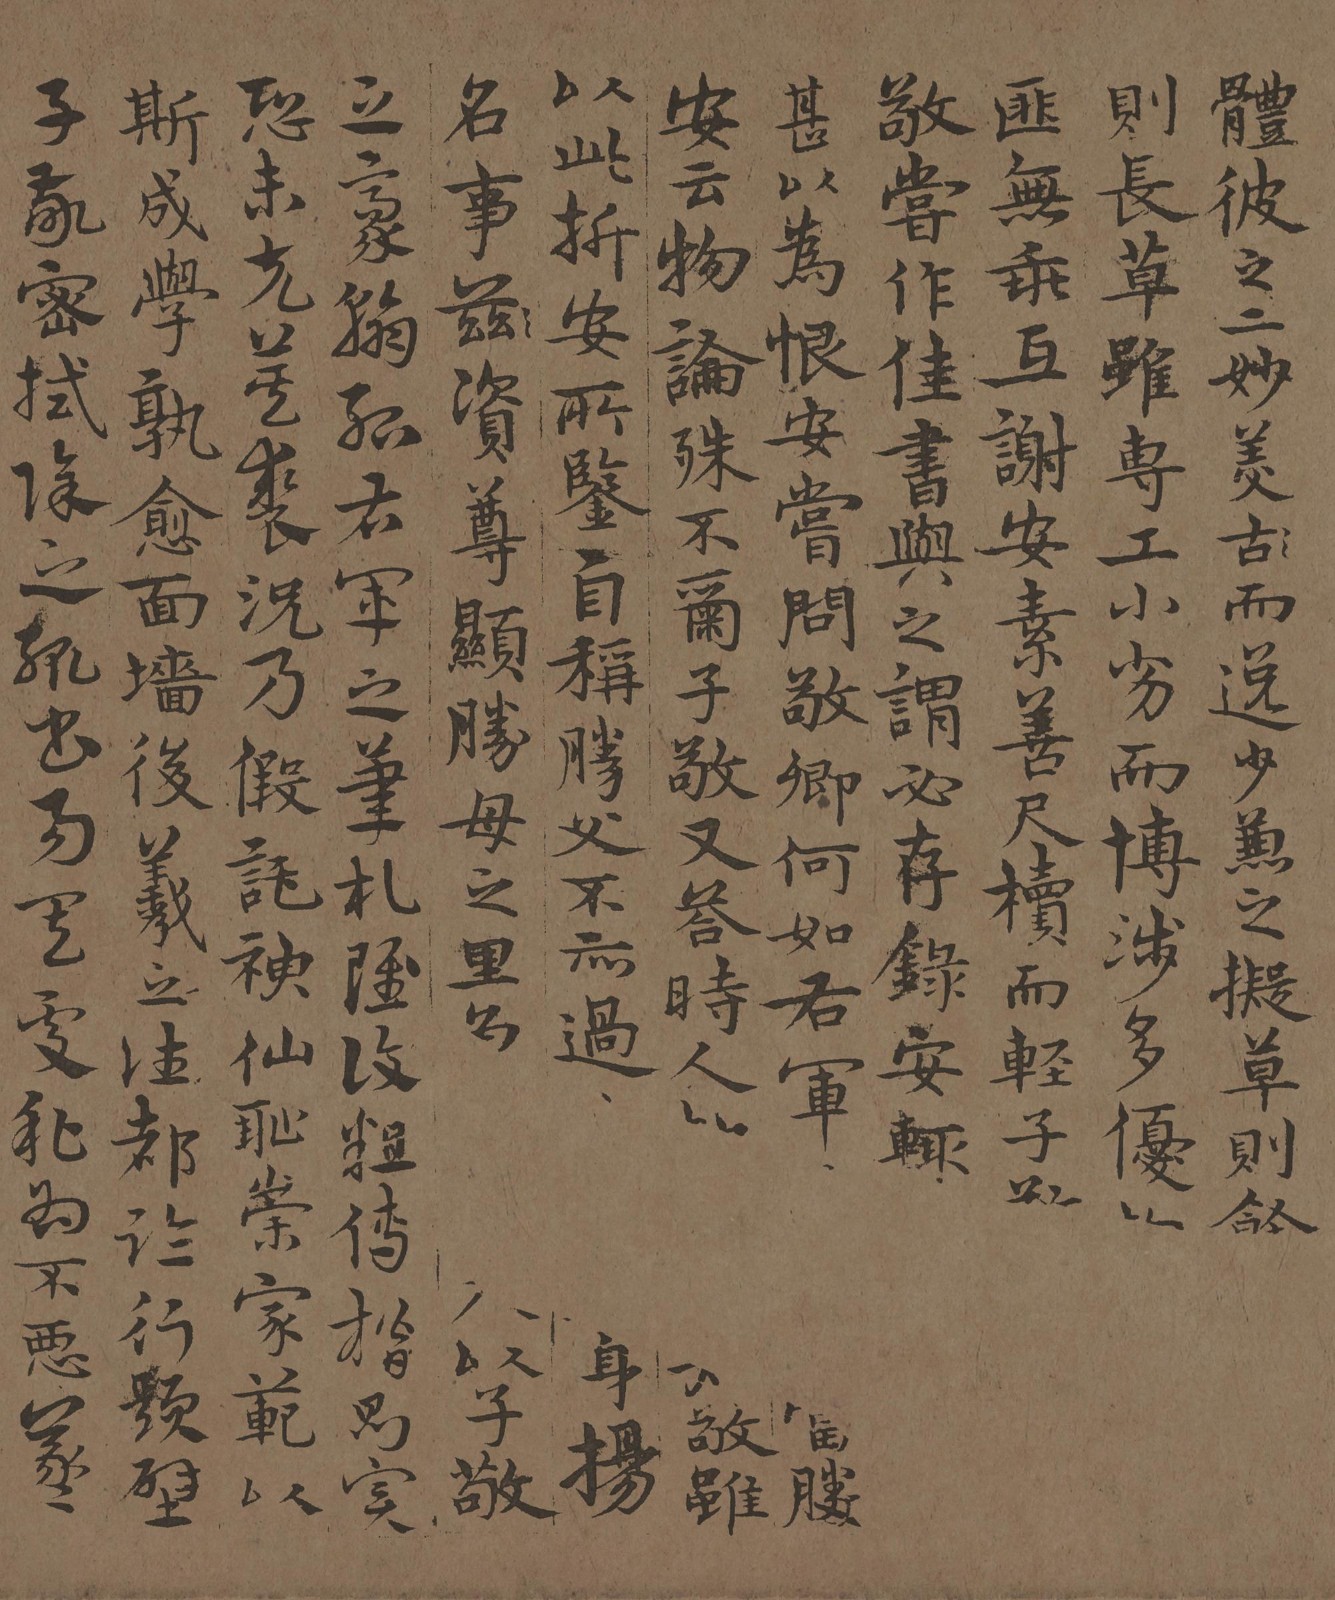 體彼之二妙美古〻而逸少兼之擬草則餘
則長草雖專工小劣而博涉多優
匪無乖互謝安素善尺牘而輕子
敬嘗作佳書與之謂必存錄安輒
甚以為恨安嘗問敬卿何如右軍 當勝
安云物論殊不爾子敬又答時人 敬雖
以此折安所鑒自稱勝父不亦過 身揚
名事茲〻資尊顯勝母之里 以子敬
之豪翰紹右軍之筆札雖復粗傳楷則實
恐未克箕裘況乃假託神仙恥崇家範以
斯成學孰愈面墻後羲之往都臨行題壁
子敬密拭除之輒書易其處私為不惡羲之